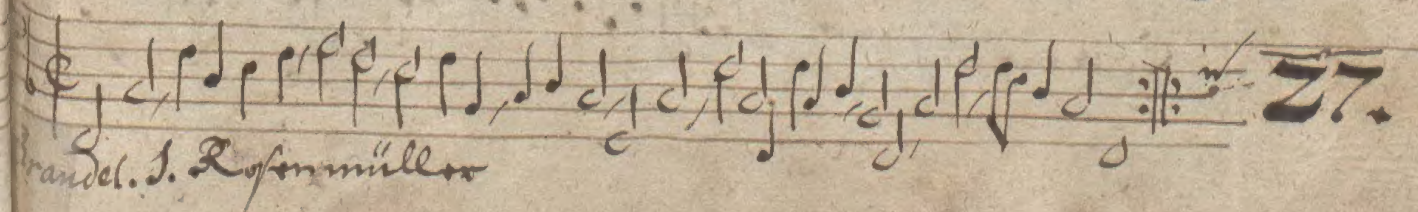 27.
Brandel. J. Rosenmüller